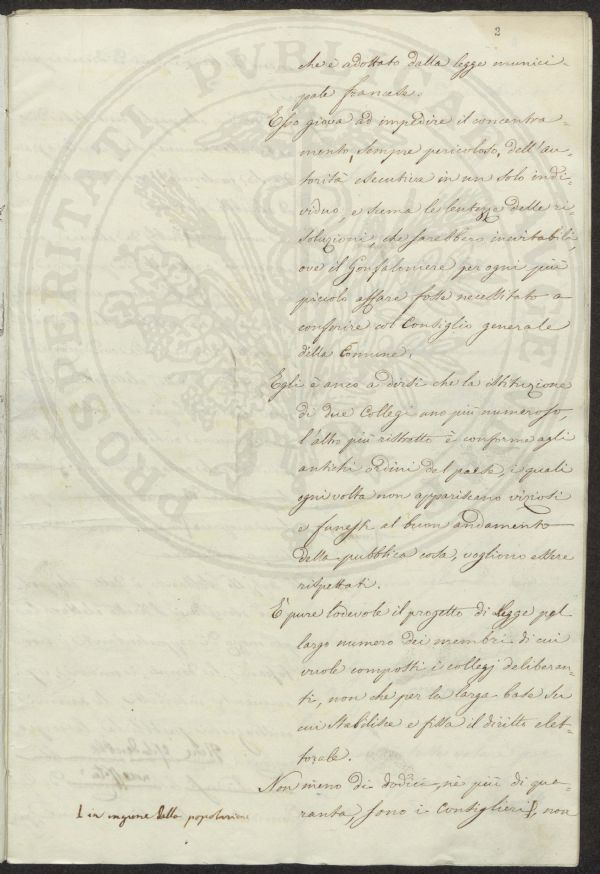 2
che è adottato dalla legge munici-
pale francese.
Esso giova ad impedire il concentra-
mento, sempre pericoloso, dell'au-
torità esecutiva in un solo indi-
viduo, e scema le lentezze delle ri-
soluzioni, che sarebbero inevitabili,
ove il Gonfaloniere per ogni più
piccolo affare fosse necessitato a
conferire col Consiglio generale
della Comune.
Egli è anco a dirsi che la istituzione
di due Collegi uno più numeroso,
l'altro più ristretto è conforme agli
antichi ordini del paese, i quali
ogni volta non appariscano viziosi
e funesti al buon andamento
della pubblica cosa, vogliono essere
rispettati.
È pure lodevole il progetto di legge pel
largo numero dei membri di cui
vuole composti i collegj deliberan-
ti, non che per la larga base su
cui stabilisce e fissa il diritto elet-
torale.
Non meno di dodici, nè più di qua-
ranta, sono i Consiglieri, non
in ragione della popolazione